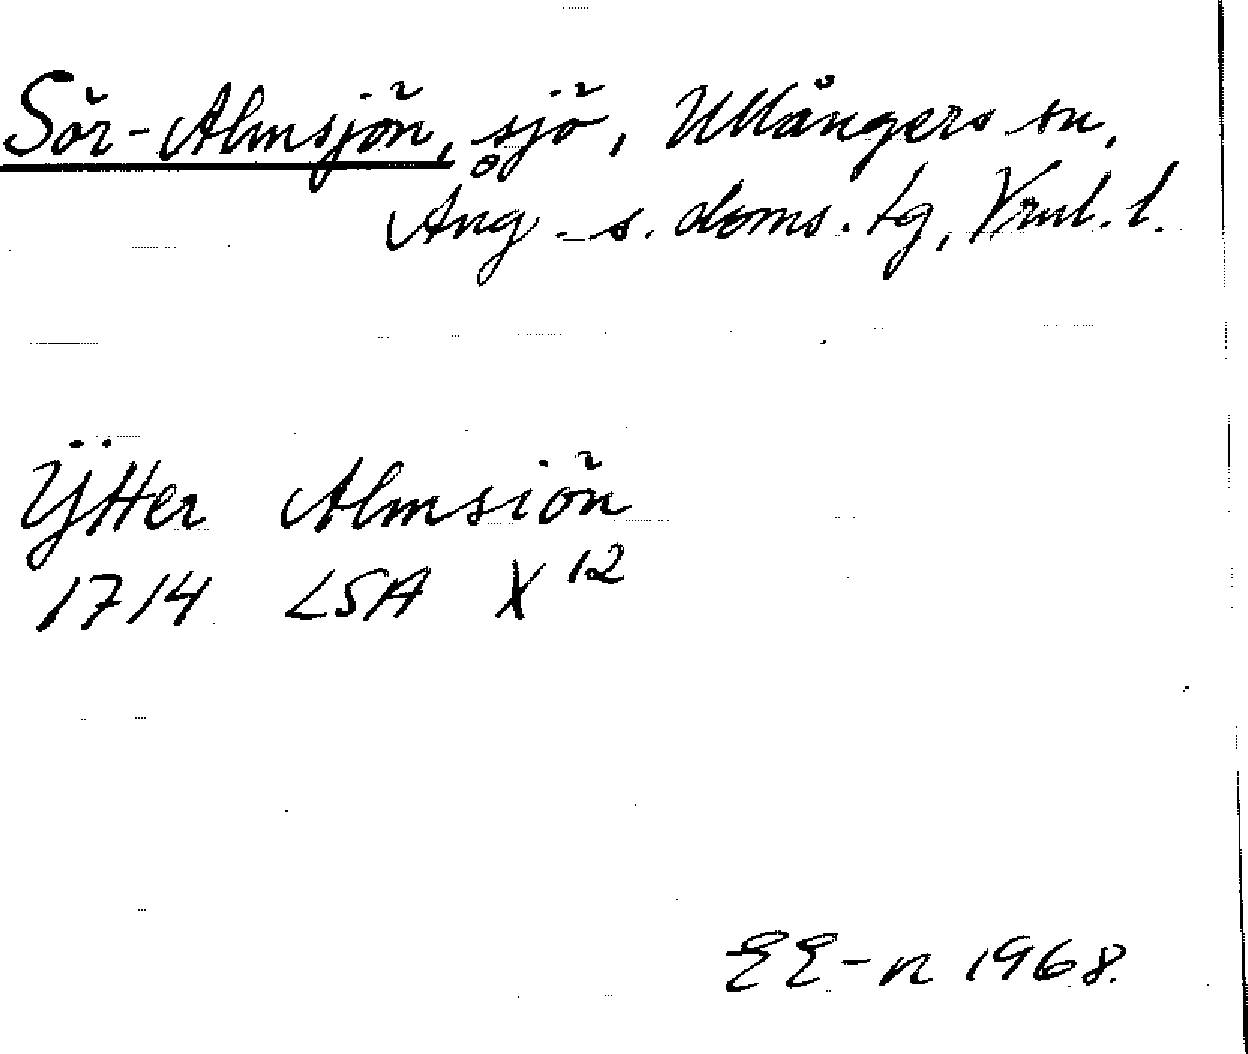 Sör-Almsjön, sjö, Ullångers sn,
Ång. s. doms. tg, Vrnl. l.
Ÿtter Almsiön
1714 LSA X 12
EE-n 1968.